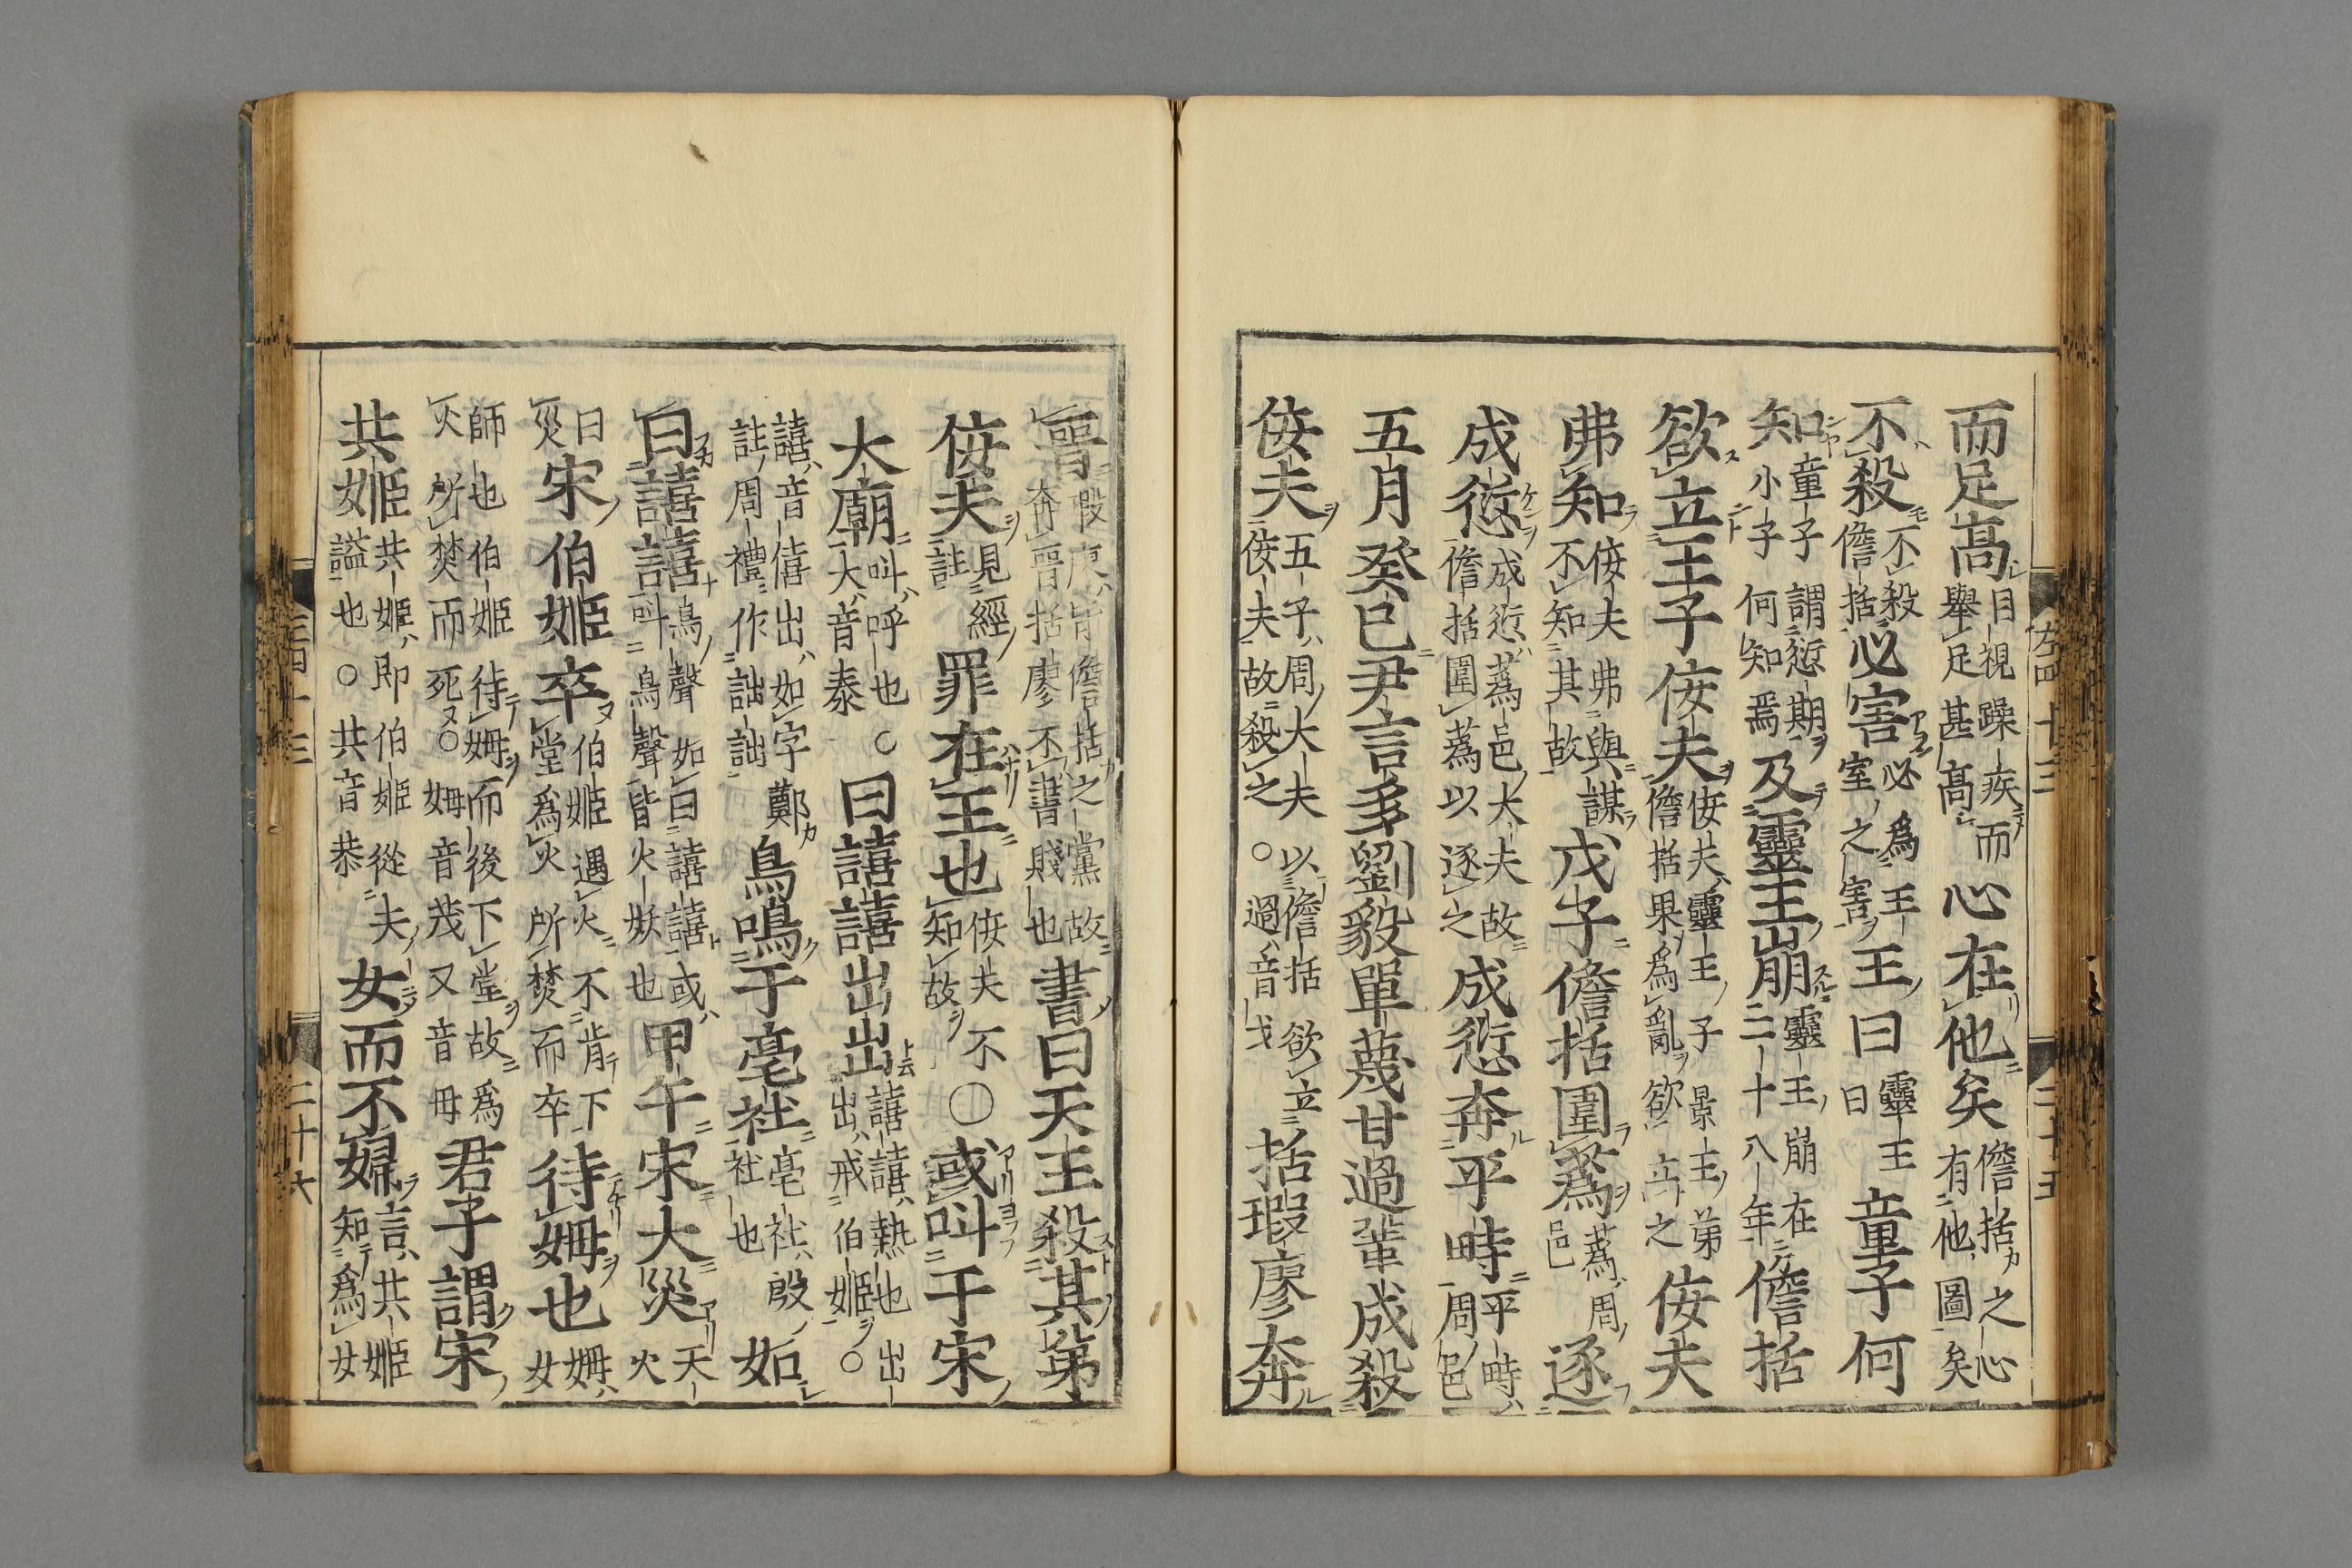 而足高目視躁疾而擧足甚高心在他矣儋括之心有他圖矣
不殺不殺儋括必害必爲王室之害王曰靈王曰童子何
知童子謂愆期小子何知焉及靈王崩靈王崩在二十八年儋括
欲立王子佞夫佞夫靈王子景王弟儋括果爲亂欲立之佞夫
弗知佞夫弗與謀不知其故戊子儋括圍蔿蔿周邑逐
成愆成愆蔿邑大夫故儋括圍蔿以逐之成愆奔平畤平畤周邑
五月癸巳尹言多劉毅單蔑甘過鞏成殺
佞夫五子周大夫以儋括欲立佞夫故殺之○過音戈括瑕廖奔
晉瑕廖皆儋括之黨故奔晉括廖不書賤也書曰天王殺其弟
佞夫見經註罪在王也佞夫不知故○或叫于宋
大廟叫呼也○大音泰曰譆譆出出譆譆熱也出出戒伯姬○
譆音僖出如字鄭註周禮作詘詘鳥鳴于亳社亳社殷社也如
曰譆譆鳥聲如曰譆譆或叫鳥聲皆火妖也甲午宋大災天火
曰災宋伯姬卒伯姬遇火不肯下堂爲火所焚而卒待姆也姆女
師也伯姬待姆而後下堂故爲火所焚而死○姆音茂又音母君子謂宋
共姬共姬即伯姬從夫謚也○共音恭女而不婦言共姬知爲女
左四十三
二十五
三四十三
二十六